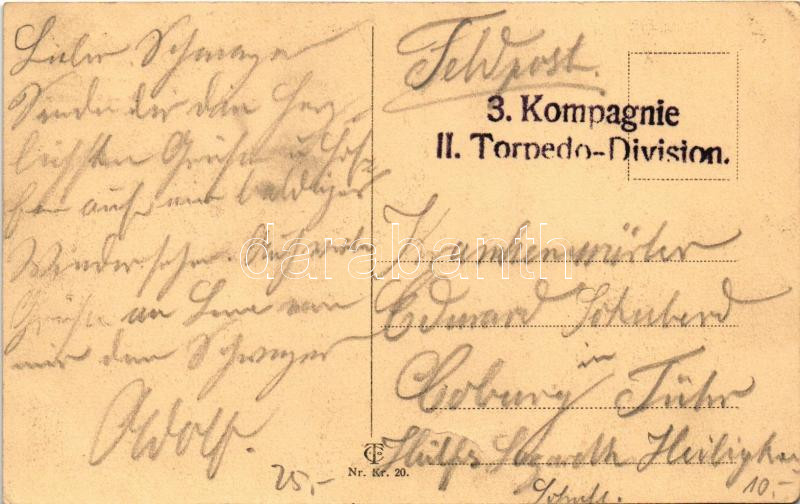 Lieber Schwager
Sende dir den herz-
lichsten Grüße u. hof-
fen auf ein baldiges
Wiedersehn. Auch viele
Grüße an Lena von
mir dem Schwager
Adolf.
Feldpost.
3. Kompagnie
II. Torpedo-Division.
Krankenwärter
Eduard Schuberd
in
Coburg Thür
Hülfs Lazareth Heiligkreuz
Schule.
25,-
10,-
Nr. Kr. 20.
darabanth